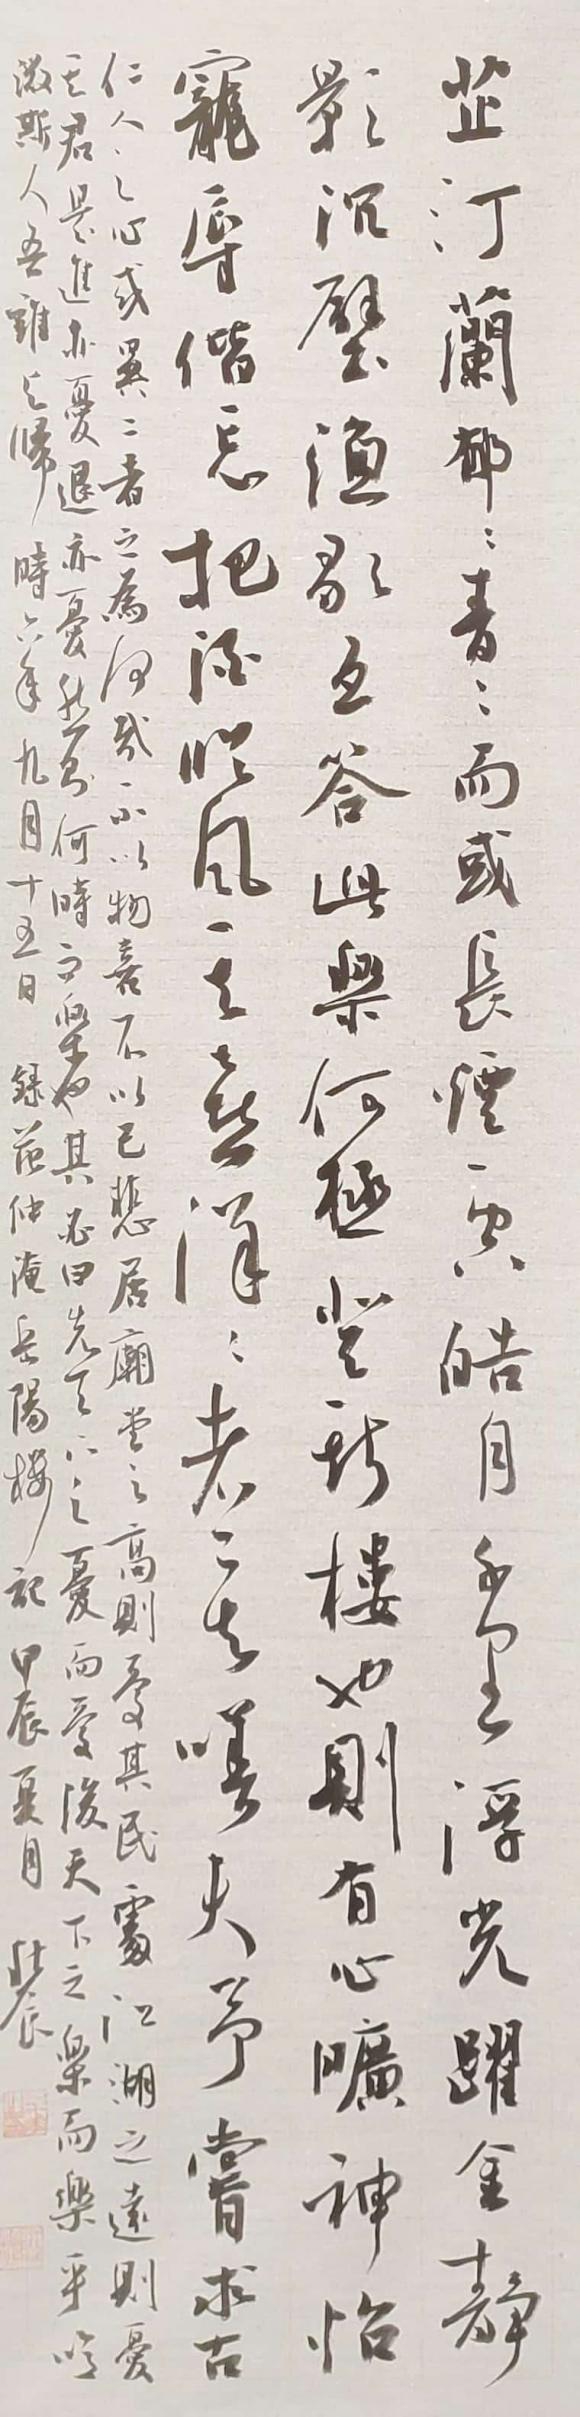 芷汀蘭郁〻青〻而或長煙一空皓月千里浮光躍金靜
影沉璧漁歌互答此樂何極登斯樓也則有心曠神怡
寵辱偕忘把酒臨風其喜洋〻者已矣嗟夫予嘗求古
仁人之心或異二者之為何哉不以物喜不以己悲居廟堂之高則憂其民處江湖之遠則憂
其君是進亦憂退亦憂然則何時而樂也其必曰先天下之憂而憂後天下之樂而樂乎噫
微斯人吾誰與歸 時六年九月十五日 錄范仲淹岳陽樓記 甲辰夏月